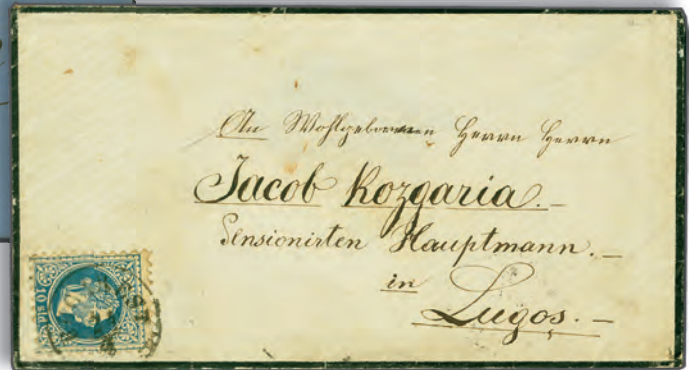 An Wohlgebornen Herrn Herrn
Jacob Kozgaria.-
Pensionirten Hauptmann.-
in
Lugos.-
10 sld